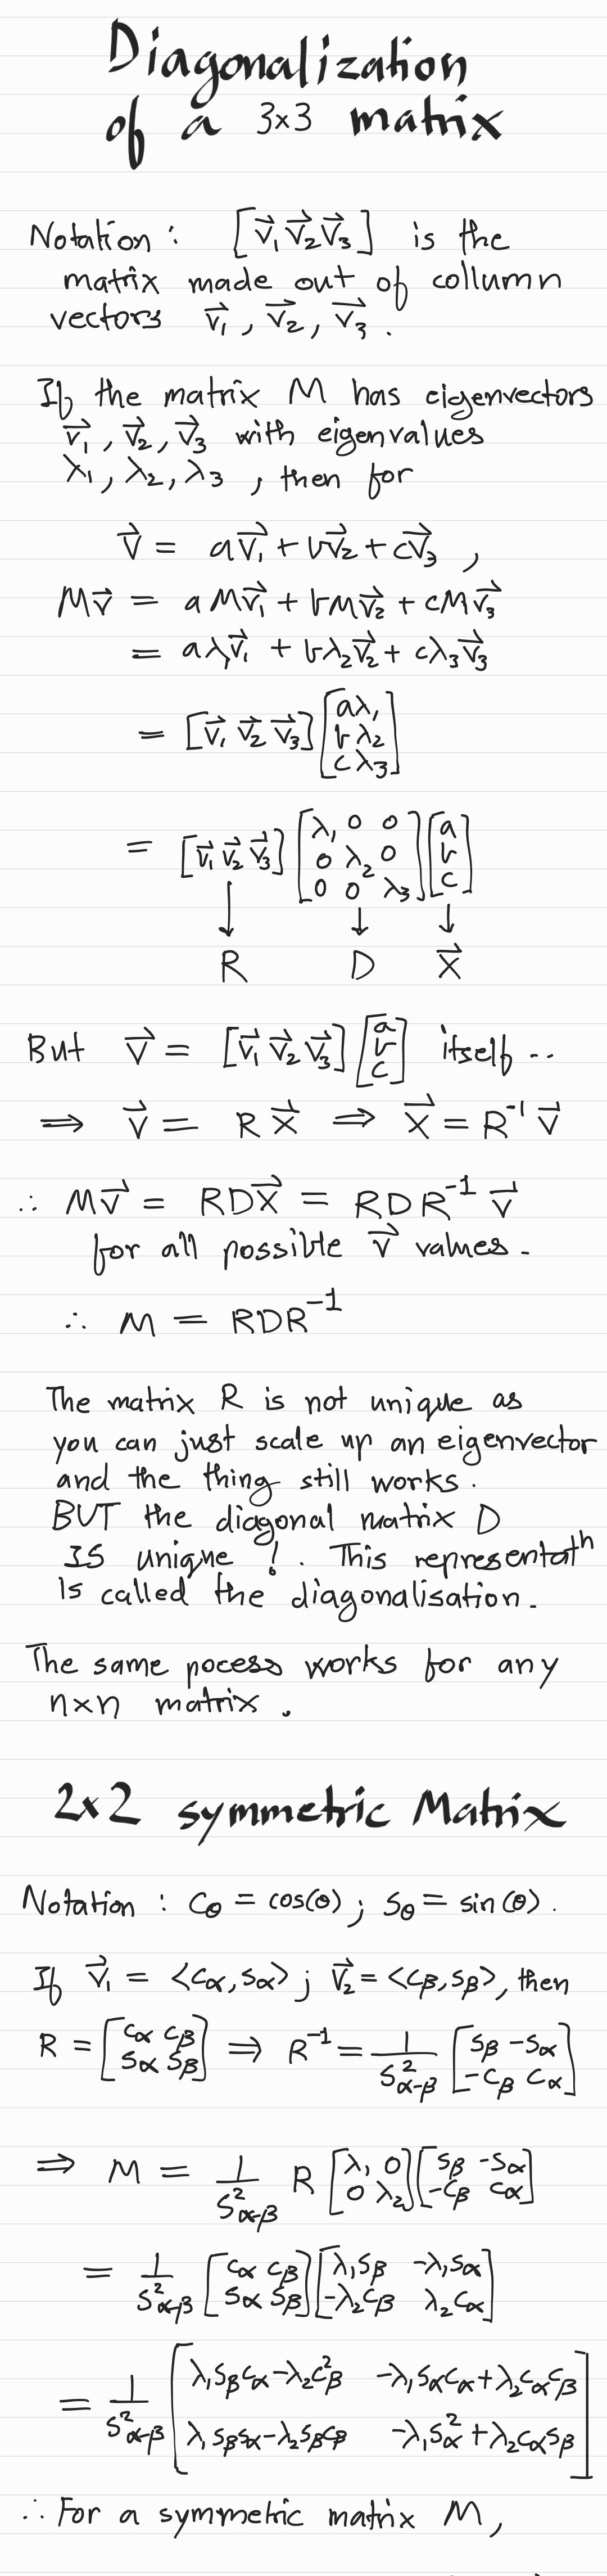 Diagonalization
of a 3x3 matrix
Notation : [v⃗₁ v⃗₂ v⃗₃] is the
matrix made out of collumn
vectors v⃗₁ , v⃗₂ , v⃗₃ .
If the matrix M has eigenvectors
v⃗₁ , v⃗₂ , v⃗₃ with eigenvalues
λ₁ , λ₂ , λ₃ , then for
v⃗ = av⃗₁ + bv⃗₂ + cv⃗₃ ,
Mv⃗ = aMv⃗₁ + bMv⃗₂ + cMv⃗₃
= aλ₁v⃗₁ + bλ₂v⃗₂ + cλ₃v⃗₃
= [v⃗₁ v⃗₂ v⃗₃] [aλ₁
bλ₂
cλ₃]
= [v⃗₁ v⃗₂ v⃗₃] [λ₁ 0 0 ] [a
0 λ₂ 0 b
0 0 λ₃ c]
↓ ↓ ↓
R D X⃗
But v⃗ = [v⃗₁ v⃗₂ v⃗₃] [a
b
c] itself ..
⇒ v⃗ = R X⃗ ⇒ X⃗ = R⁻¹ v⃗
∴ Mv⃗ = RDX⃗ = RDR⁻¹ v⃗
for all possible v⃗ values .
∴ M = RDR⁻¹
The matrix R is not unique as
you can just scale up an eigenvector
and the thing still works .
BUT the diagonal matrix D
IS unique ! . This representatⁿ
is called the diagonalisation .
The same pocess works for any
n×n matrix .
2x2 symmetric Matrix
Notation : C_θ = cos(θ) ; S_θ = sin(θ) .
If v⃗₁ = <c_α, s_α> ; v⃗₂ = <c_β, s_β>, then
R = [c_α c_β
s_α s_β] ⇒ R⁻¹ = 1/S²_α-β [s_β -s_α
-c_β c_α]
⇒ M = 1/S²_α-β R [λ₁ 0
0 λ₂] [s_β -s_α
-c_β c_α]
= 1/S²_α-β [c_α c_β
s_α s_β] [λ₁s_β -λ₁s_α
-λ₂c_β λ₂c_α]
= 1/S²_α-β [λ₁s_βc_α-λ₂c²_β -λ₁s_αc_α+λ₂c_αc_β
λ₁s_βs_α-λ₂s_βc_β -λ₁s²_α+λ₂c_αs_β]
∴ For a symmetric matrix M ,